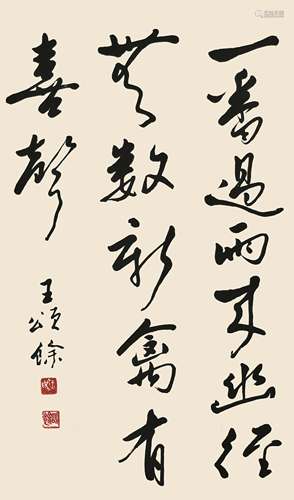 一番過雨來幽徑
無数新禽有
喜聲
王頌餘